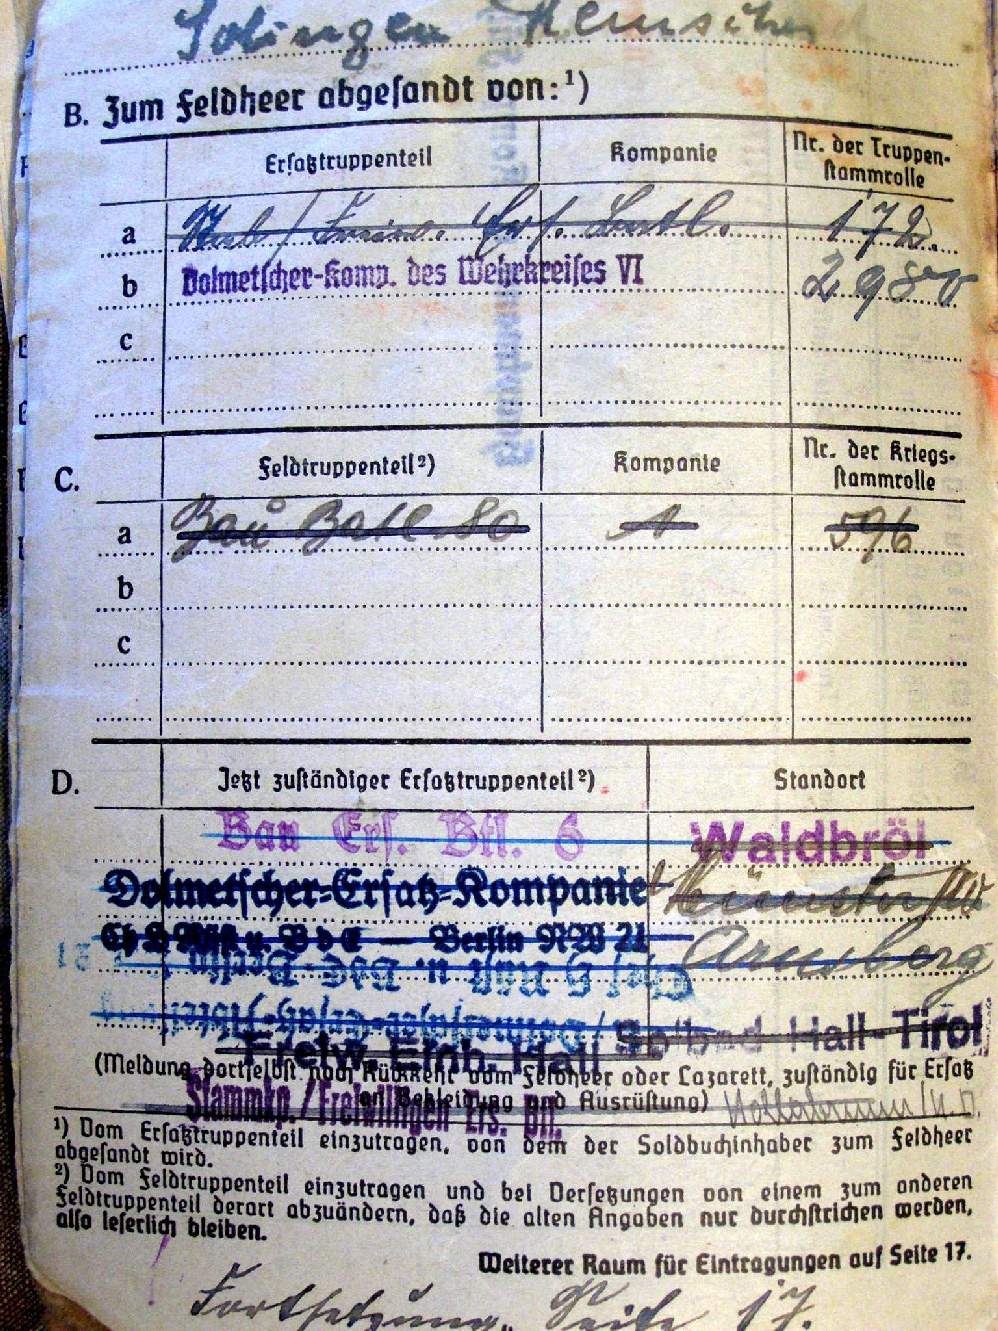 Solingen Remscheid
B. Zum Feldheer abgesandt von:¹)
Ersatztruppenteil Kompanie Nr. der Truppen-
stammrolle
a / Ers. Batl. 172.
b Dolmetscher-Komp. des Wehrkreises VI 2980
c
C. Feldtruppenteil²) Kompanie Nr. der Kriegs-
stammrolle
a Bau Batl 80 1 596
b
c
D. Jetzt zuständiger Ersatztruppenteil²) Standort
Bau Ers. Btl. 6 Waldbröl
Dolmetscher-Ersatz-Kompanie Münster
Berlin NW 21 Arnsberg
Freiw. Einh. Hall Solbad Hall-Tirol
(Meldung dortselbst nach Rückkehr vom Feldheer oder Lazarett, zuständig für Ersatz
an Bekleidung und Ausrüstung)
Stammkp./Freiwilligen Ers. Btl. Hollabrunn/N.D.
¹) Vom Ersatztruppenteil einzutragen, von dem der Soldbuchinhaber zum Feldheer
abgesandt wird.
²) Vom Feldtruppenteil einzutragen und bei Versetzungen von einem zum anderen
Feldtruppenteil derart abzuändern, daß die alten Angaben nur durchstrichen werden,
also leserlich bleiben.
Weiterer Raum für Eintragungen auf Seite 17.
Fortsetzung Seite 17.